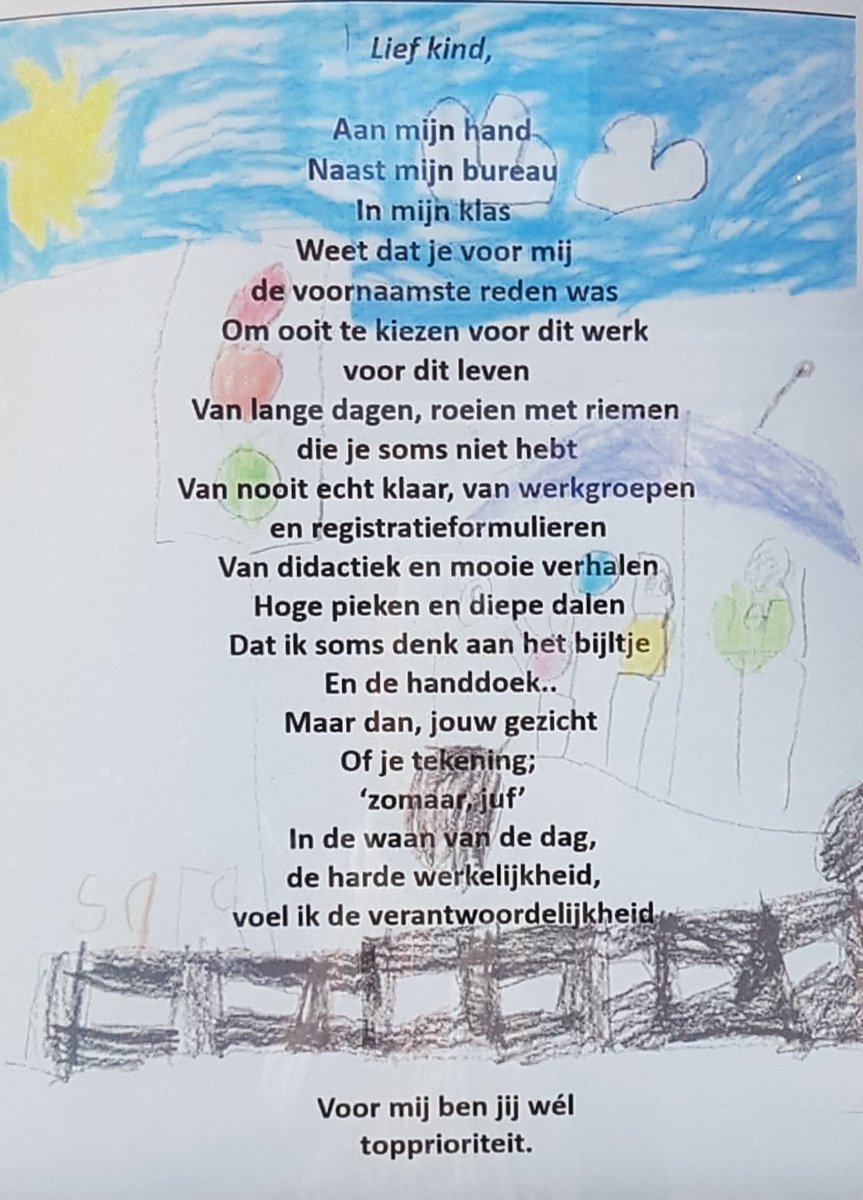 Lief kind,
Aan mijn hand
Naast mijn bureau
In mijn klas
Weet dat je voor mij
de voornaamste reden was
Om ooit te kiezen voor dit werk
voor dit leven
Van lange dagen, roeien met riemen
die je soms niet hebt
Van nooit echt klaar, van werkgroepen
en registratieformulieren
Van didactiek en mooie verhalen
Hoge pieken en diepe dalen
Dat ik soms denk aan het bijltje
En de handdoek..
Maar dan, jouw gezicht
Of je tekening;
‘zomaar, juf’
In de waan van de dag,
de harde werkelijkheid,
voel ik de verantwoordelijkheid
sara
Voor mij ben jij wél
topprioriteit.